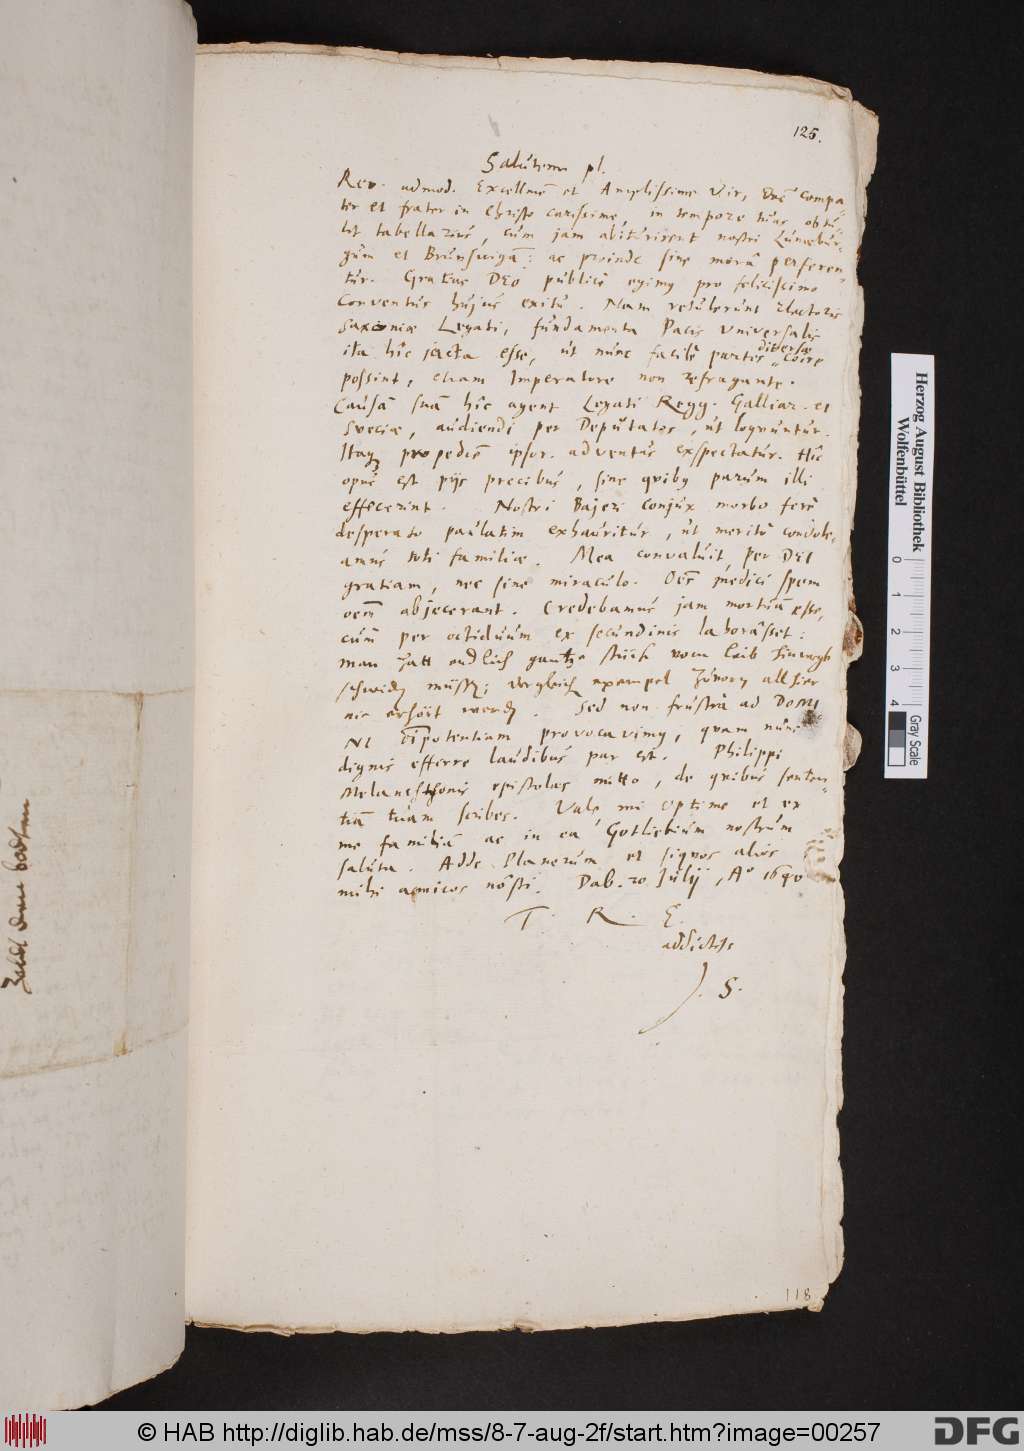 125.
Salutem pl.
Rev. admod. Excellme et Amplissime Vir, Dne Compa-
ter et frater in Christo carissime, in tempore huc obtu-
lit tabellarius, cum jam abiturirent nostri Lunebur-
gum et Brunswigā: ac proinde sine morâ perferen-
tur. Gratias DEO publicè egimq pro felicissimo
Conventus hujus exitu. Nam retulerunt Electoris
Saxoniæ Legati, fundamenta Pacis Universalis
ita hîc jacta esse, ut nunc facilè partes diversæ coire
possint, etiam Imperatore non refragante.
Causā suā hîc agent Legati Regg. Galliar. et
Sveciæ, audiendi per Deputatos, ut loquuntur.
Itaq propediē ipsor. adventus exspectatur. Hîc
opus est pijs precibus, sine quibq parum illi
effecerint. Nostri Bajeri conjux morbo ferè
desperato paulatim exhauritur, ut meritò condole-
amus toti familiæ. Mea convaluit, per DEI
gratiam, nec sine miraculo. Oēs medici spem
oēm abjecerant. Credebamus jam mortuā esse,
cùm per octiduum ex secundinis laborâsset:
man hatt endlich gantze stück vom leib hinwegk
schneidē müssē; dergleich exempel zuvorn allhier
nie erhört wordē. Sed non frustrà ad DOMI-
NI oīpotentiam provocavimq, quam nunc
dignis efferre laudibus par est. Philippi
Melanchthonis epistolas mitto, de quibus senten-
tiā tuam scribes. Vale, mi optime et ex
me familiā ac in ea Gotliebium nostrum
saluta. Adde Planerum et siquos alios
mihi amicos nôsti. Dab. 20 Julij, Aº 1640
T. R. E.
addictiss
J. S.
118
Herzog August Bibliothek
Wolfenbüttel
0 1 2 3 4
Gray Scale
© HAB http://diglib.hab.de/mss/8-7-aug-2f/start.htm?image=00257
DFG